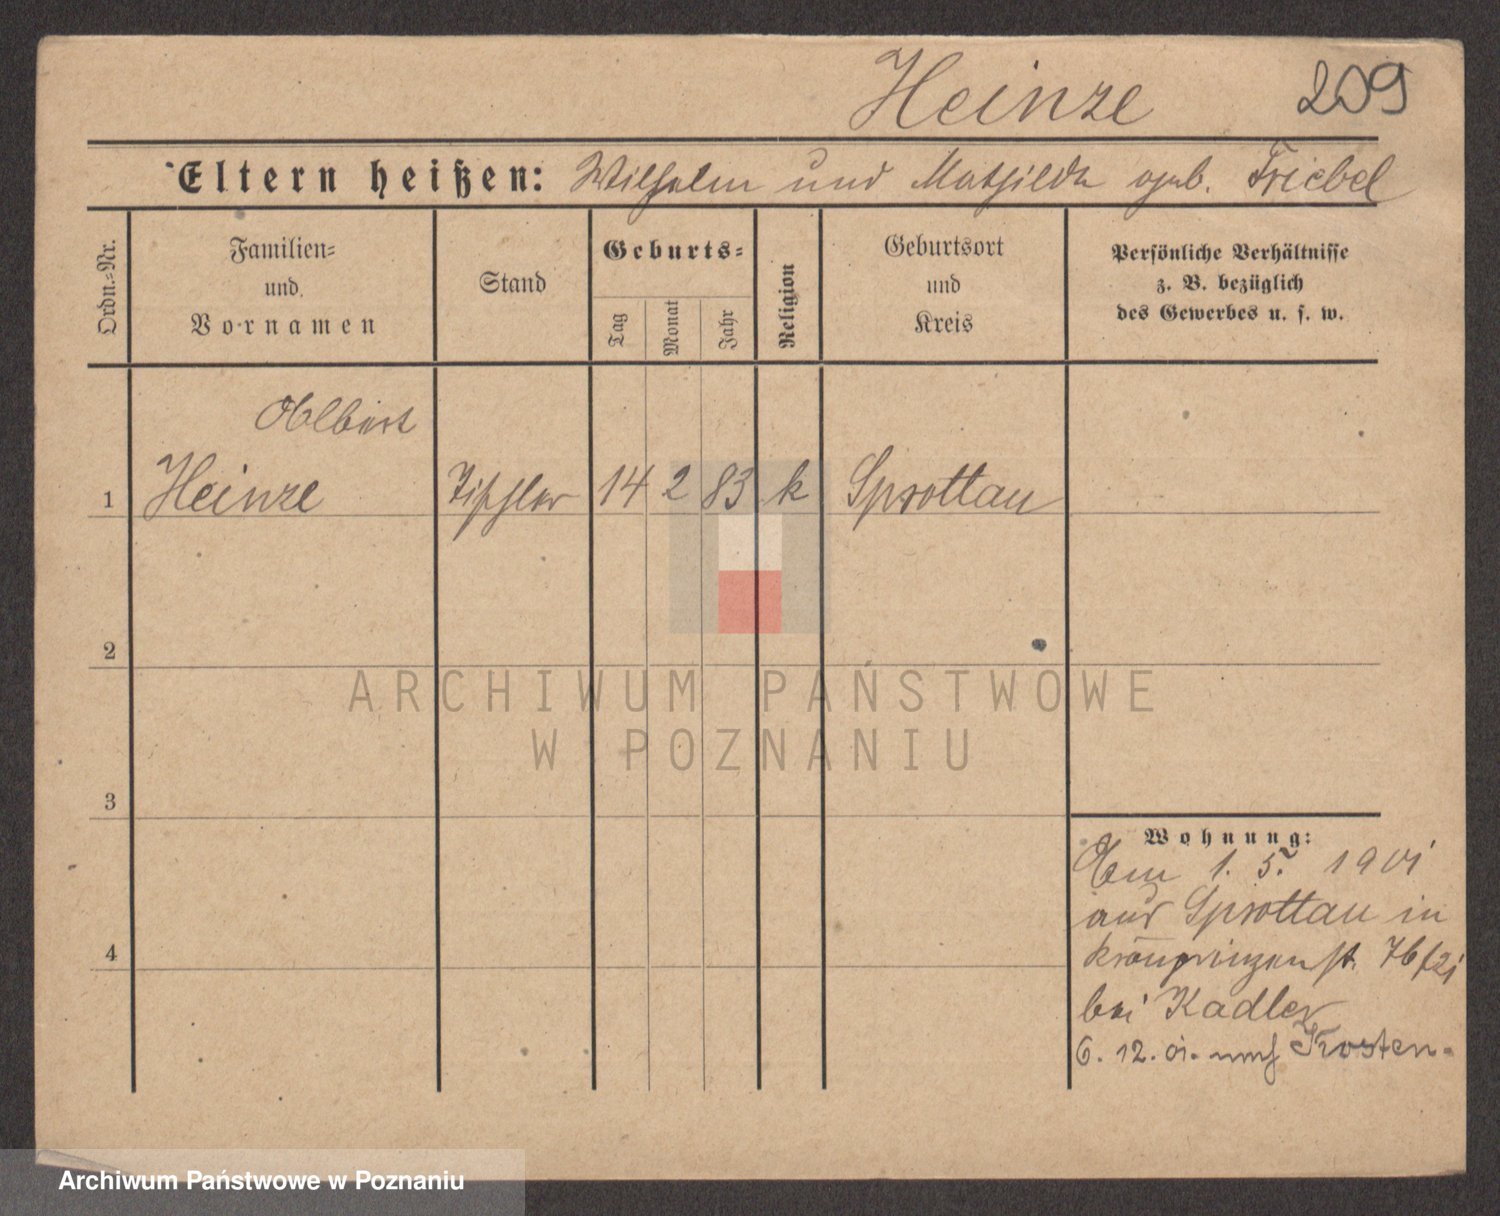 Heinze 209
Eltern heißen: Wilhelm und Mathilde geb. Friebel
Ordn.=Nr.
Familien=
und
Vornamen
Stand
Geburts=
Tag
Monat
Jahr
Religion
Geburtsort
und
Kreis
Persönliche Verhältnisse
z. B. bezüglich
des Gewerbes u. s. w.
Albert
1 Heinze Tischler 14 2 83 k Sprottau
2
ARCHIWUM PAŃSTWOWE
W POZNANIU
3
Wohnung:
Am 1. 5. 1901
aus Sprottau in
Kronprinzenst.
bei Kadler
4
6. 12. 01. nach Kosten
Archiwum Państwowe w Poznaniu